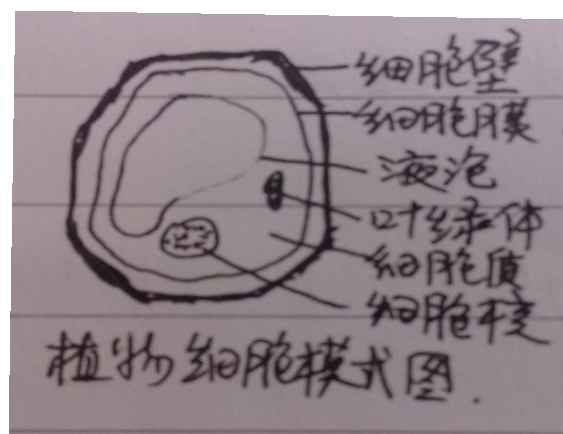 细胞壁
细胞膜
液泡
叶绿体
细胞质
细胞核
植物细胞模式图.